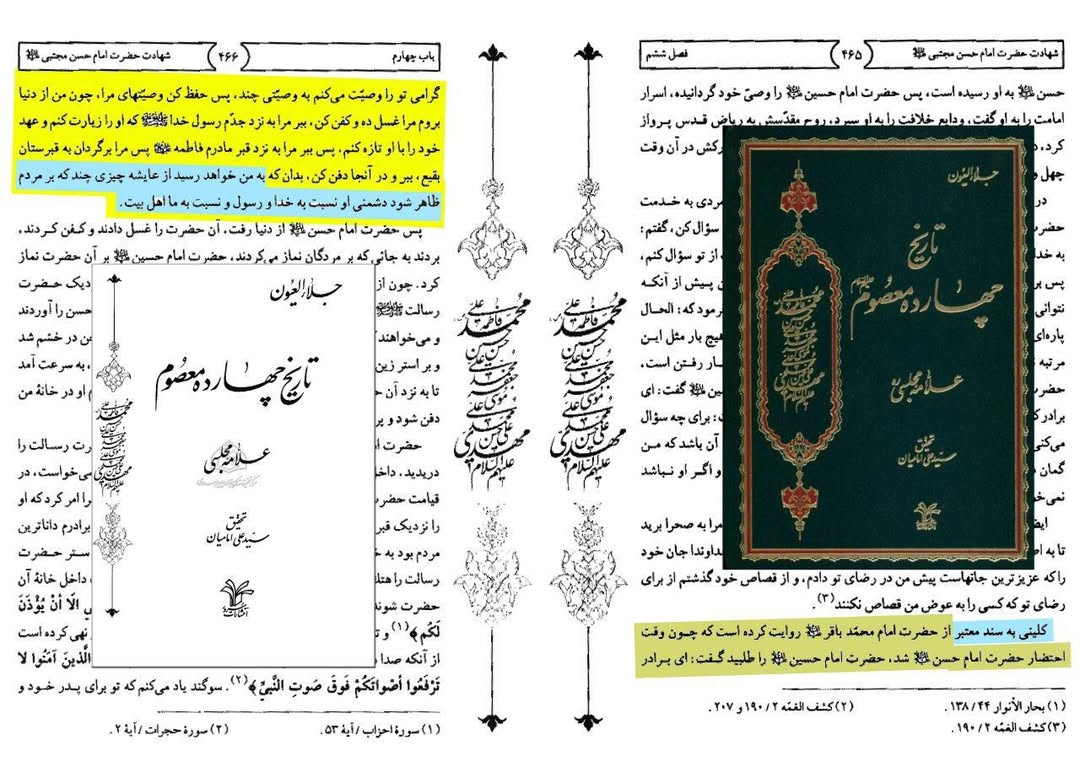 شهادت حضرت امام حسن مجتبی علیه السلام
۴۶۵
فصل ششم
حسن علیه السلام به او رسیده است، پس حضرت امام حسین علیه السلام را وصیّ خود گردانیده، اسرار
امامت را به او گفت، ودایع خلافت را به او سپرد، روح مقدّسش به ریاض قدس پرواز
کرد،
رکش در آن وقت
چهل و
در
مردی به خدمت
حضرت
سؤال کن، گفتم:
به خدا
از تو سؤال کنم،
پس بر
پیش از آنکه
نتوانی
رمود که: الحال
پاره‌ای
هیچ بار مثل این
مرتبه
ار رفتن است،
حضرت
گفت: ای
برادر ک
: برای چه سؤال
می‌کنی
آن باشد که من
گمان
و اگر او نباشد
نمی‌خو
ایض
مرا به صحرا برید
تا به اص
داوندا جان خود
را که عزیزترین جانهاست پیش من در رضای تو دادم، و از قصاص خود گذشتم از برای
رضای تو که کسی را به عوض من قصاص نکنند (۳).
کلینی به سند معتبر از حضرت امام محمّد باقر علیه السلام روایت کرده است که چون وقت
احتضار حضرت امام حسن علیه السلام شد، حضرت امام حسین علیه السلام را طلبید گفت: ای برادر
(۱) بحار الأنوار ۴۴ / ۱۳۸.
(۲) کشف الغمّه ۲ / ۱۹۰ و ۲۰۷.
(۳) کشف الغمّه ۲ / ۱۹۰.
جلاء العیون
تاریخ
چهارده معصوم
علامه مجلسی ره
تحقیق
سید علی امامیان
باب چهارم
۴۶۶
شهادت حضرت امام حسن مجتبی علیه السلام
گرامی تو را وصیّت می‌کنم به وصیّتی چند، پس حفظ کن وصیّتهای مرا، چون من از دنیا
بروم مرا غسل ده و کفن کن، ببر مرا به نزد جدّم رسول خدا صلی الله علیه وآله که او را زیارت کنم و عهد
خود را با او تازه کنم. پس ببر مرا به نزد قبر مادرم فاطمه علیها السلام پس مرا برگردان به قبرستان
بقیع، ببر و در آنجا دفن کن، بدان که به من خواهد رسید از عایشه چیزی چند که بر مردم
ظاهر شود دشمنی او نسبت به خدا و رسول و نسبت به ما اهل بیت.
پس حضرت امام حسن علیه السلام از دنیا رفت، آن حضرت را غسل دادند و کفن کردند،
بردند به جائی که بر مردگان نماز می‌کردند، حضرت امام حسین علیه السلام بر آن حضرت نماز
کرد. چون از
دیک حضرت
رسالت صلی الله علیه وآله
حسن را آوردند
و می‌خواهند
ن در خشم شد
و بر استر زین
، به سرعت آمد
تا به نزد آن ح
او در خانهٔ من
دفن شود و پر
حضرت ا
رت رسالت را
دریدید. داخل
می‌خواست، در
قیامت حضر
را امر کرد که او
را نزدیک قبر
برادرم داناترین
مردم بود به خ
ستر حضرت
رسالت را هتک
داخل خانهٔ آن
حضرت شوند
ی الّا اَنْ یُؤْذَنَ
لَکُم﴾ (۱) و ن
نهی کرده است
از آنکه صدا
الَّذینَ آمَنُوا لا
تَرْفَعُوا أَصْواتَکُمْ فَوْقَ صَوتِ النَّبیِّ﴾ (۲). سوگند یاد می‌کنم که تو برای پدر خود و
(۱) سورهٔ احزاب / آیهٔ ۵۳.
(۲) سورهٔ حجرات / آیهٔ ۲.
جلاء العیون
تاریخ چهارده معصوم
علامه مجلسی
تحقیق
سید علی امامیان